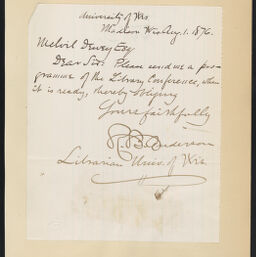 University of Wis.
Madison Wis Aug. 1. 1876.
Melvil Dewey Esq
Dear Sir: Please send me a pro-
gramme of the Library Conference, when
it is ready, thereby obliging
Yours faithfully
R. B. Anderson
Librarian Univ. of Wis.